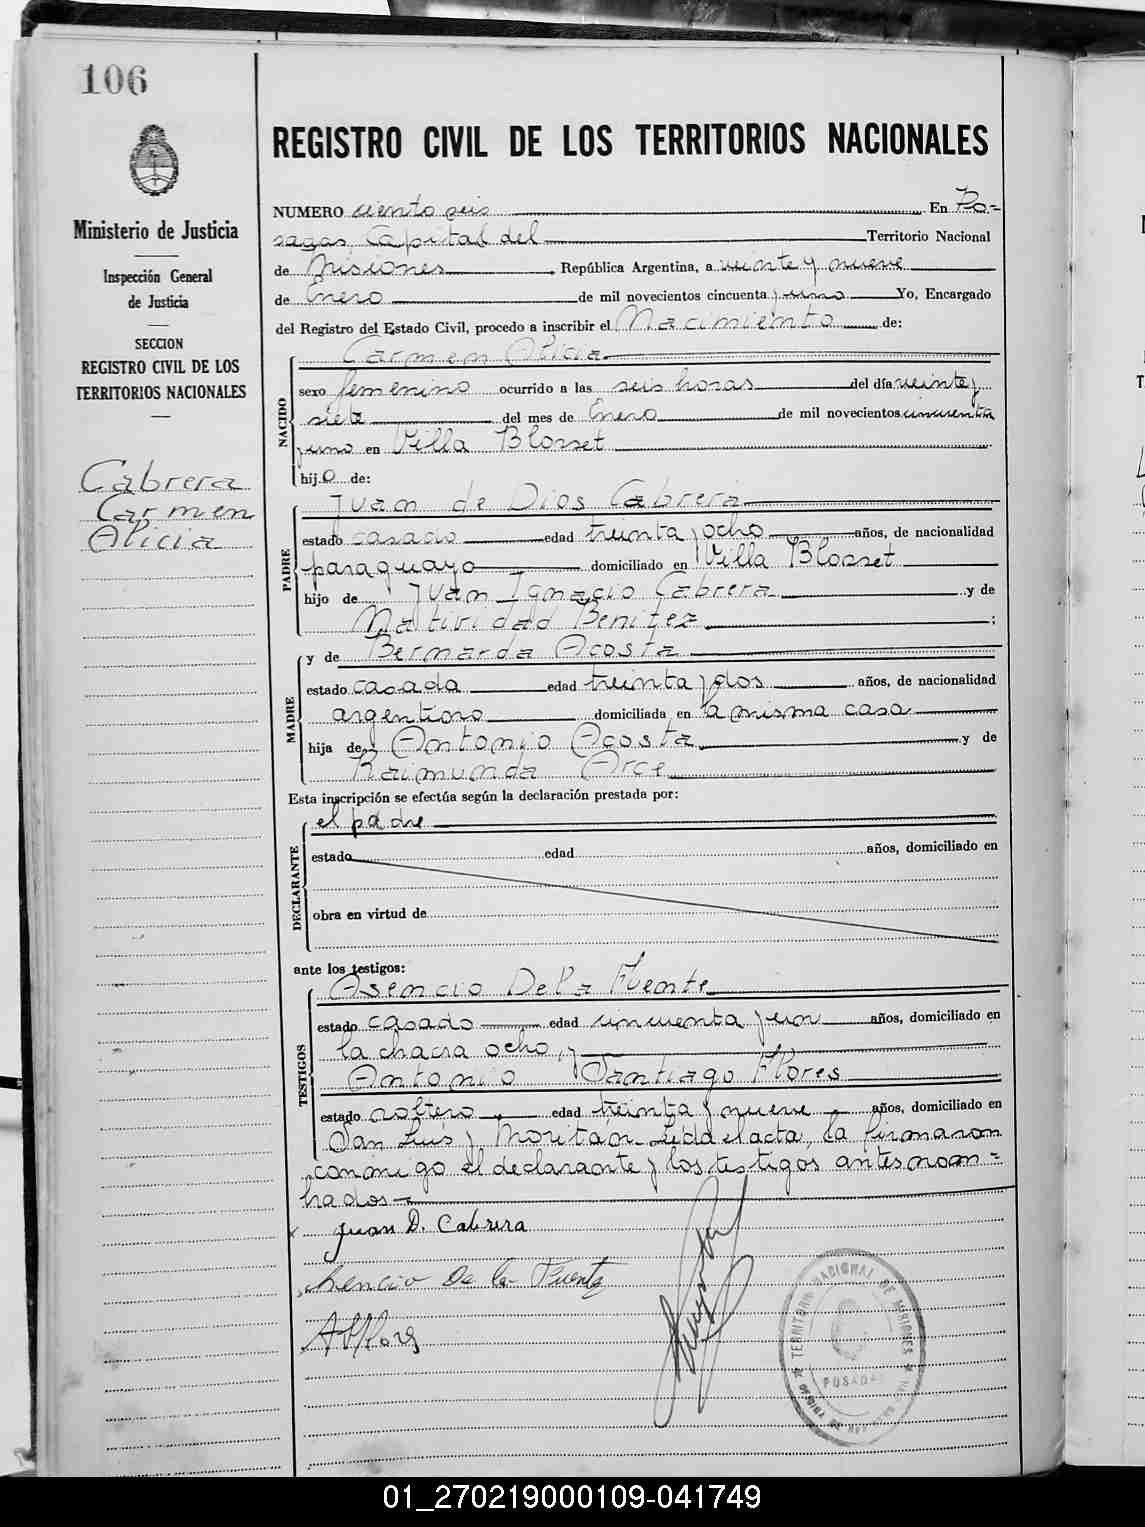 106
Ministerio de Justicia
Inspección General
de Justicia
SECCION
REGISTRO CIVIL DE LOS
TERRITORIOS NACIONALES
Cabrera
Carmen
Alicia
REGISTRO CIVIL DE LOS TERRITORIOS NACIONALES
NUMERO ciento seis En Po-
sagas Capital del Territorio Nacional
de Misiones República Argentina, a veinte y nueve
de Enero de mil novecientos cincuenta y uno Yo, Encargado
del Registro del Estado Civil, procedo a inscribir el Nacimiento de:
NACIDO
Carmen Alicia
sexo femenino ocurrido a las seis horas del día veinte y
siete del mes de Enero de mil novecientos cincuenta
y uno en Villa Blosset
hijo de:
PADRE
Juan de Dios Cabrera
estado casado edad treinta y ocho años, de nacionalidad
paraguayo domiciliado en Villa Blosset
hijo de Juan Ignacio Cabrera y de
Natividad Benitez ;
MADRE
y de Bernarda Acosta
estado casada edad treinta y dos años, de nacionalidad
argentino domiciliada en la misma casa
hija de Antonio Acosta y de
Raimunda Arce
Esta inscripción se efectúa según la declaración prestada por:
DECLARANTE
el padre
estado edad años, domiciliado en
obra en virtud de
ante los testigos:
TESTIGOS
Asencio De la Fuente
estado casado edad cincuenta y un años, domiciliado en
la chacra ocho, y
Antonio Santiago Flores
estado soltero, edad treinta y nueve años, domiciliado en
San Luis y Moritán Leída el acta, la firmaron
conmigo el declarante y los testigos antes nom=
brados
Juan D. Cabrera
Asencio De la Fuente
AFlores
TERRITORIO NACIONAL DE MISIONES
POSADAS
01_270219000109-041749